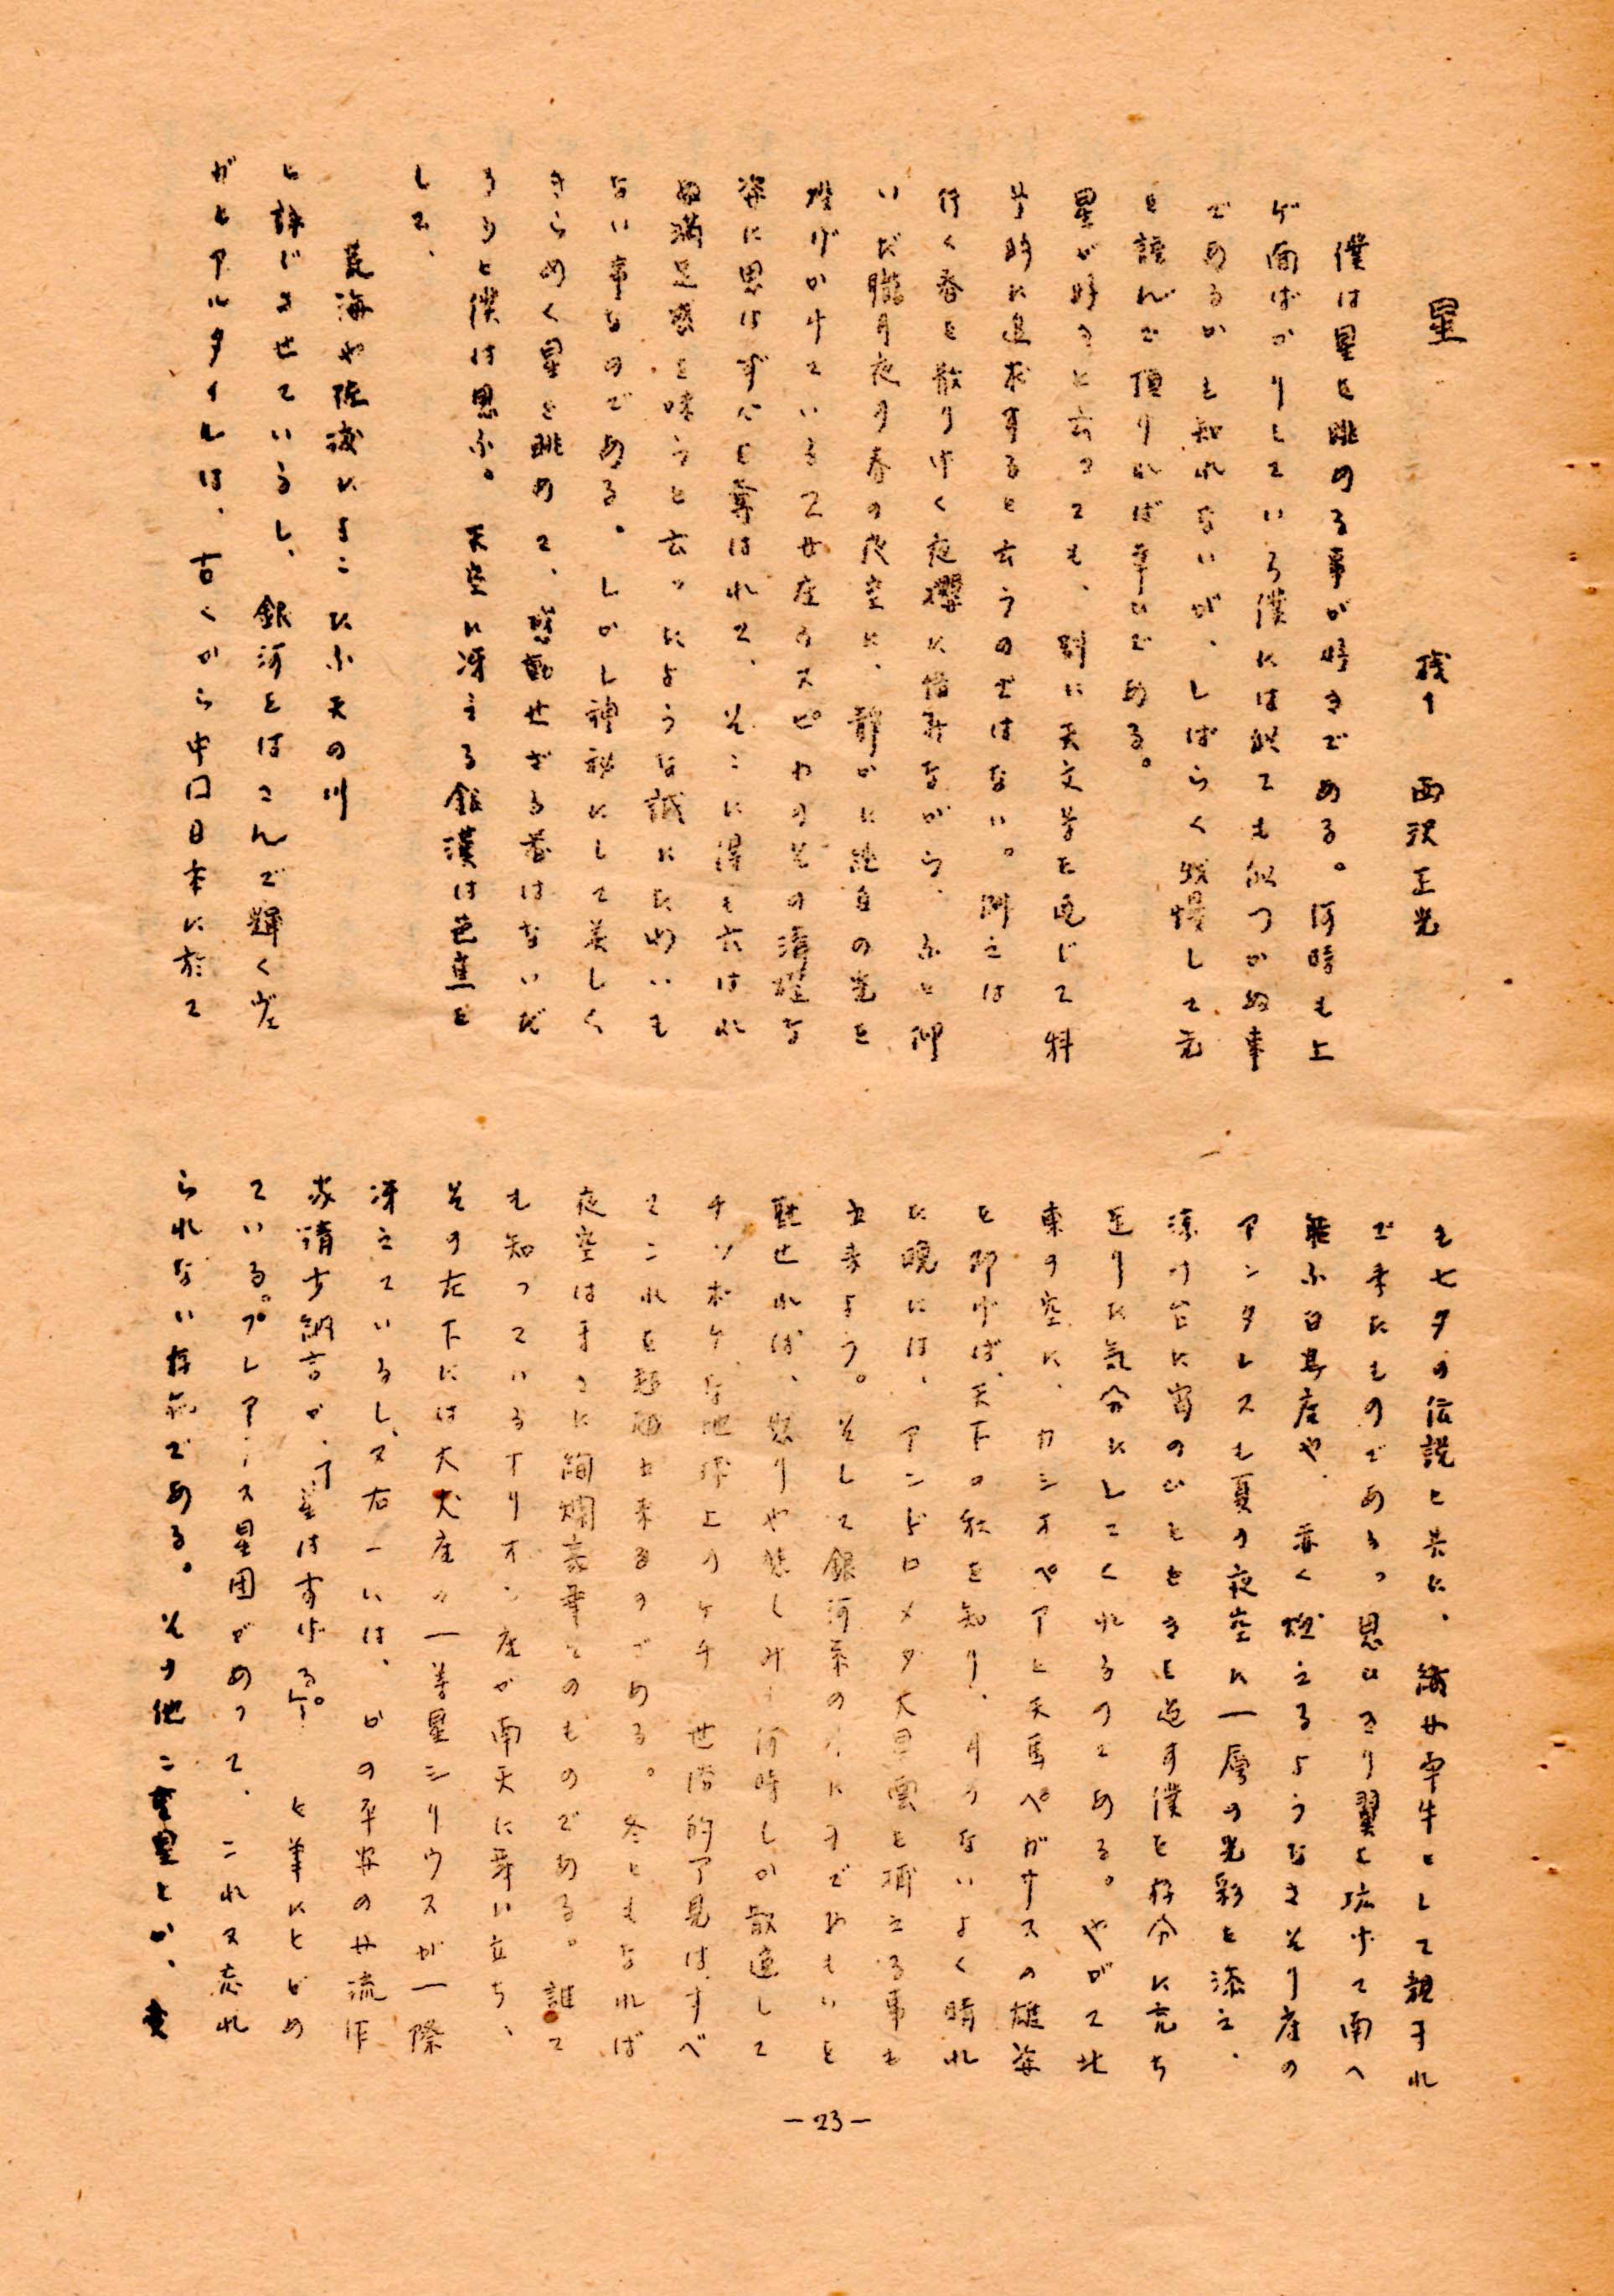 星
残1 西沢正光
僕は星を眺める事が好きである。何時も上
ゲ面ばかりしている僕には似ても似つかぬ事
であるかも知れないが、しばらく我慢して元
を読んで頂ければ幸ひである。
星が好きと云っても、別に天文学を通じて科
学的に追求すると云うのではない。例えば
行く春を散りゆく夜櫻に惜みながら、ふと仰
いだ朧月夜の春の夜空に、静かに純白の光を
投げかけている乙女座のスピカのその清楚な
姿に思はず心を奪はれて、そこに得も云はれ
ぬ満足感を味うと云ったような誠にたわいも
ない事なのである。しかし神秘にして美しく
きらめく星を眺めて、感動せざる者はないだ
ろうと僕は思ふ。天空に冴える銀漢は芭蕉を
して、
荒海や佐渡によこたふ天の川
と詠じさせているし、銀河をはさんで輝くヴェ
ガとアルタイルは、古くから中国日本に於て
も七夕の伝説と共に、織女牽牛として親まれ
て来たものであるっ思ひきり翼を拡げて南へ
飛ぶ白鳥座や、赤く燃えるようなさそり座の
アンタレスも夏の夜空に一層の光彩を添え、
涼み台に宵のひとときを過す僕を存分に充ち
足りた気分にしてくれるのである。やがて北
東の空に、カシオペアと天馬ペガサスの雄姿
を仰げば、天下の秋を知り、月のないよく晴れ
た晩には、アンドロメダ大星雲を捕える事も
出来よう。そして銀河系の外にまでおもいを
馳せれば、怒りや悲しみも何時しか散逸して
チッポケな地球上のケチ 世俗的ア見は、すべ
てこれを超越出来るのである。冬ともなれば
夜空はまさに絢爛豪華そのものである。誰て
も知っているオリオン座が南天に舞い立ち、
その左下には大犬座の一等星シリウスが一際
冴えているし、又右上には、かの平安の女流作
家清少納言が、「星はすばる。」と筆にとどめ
ている。プレアデス星団があって、これ又忘れ
られない存在である。その他二重星とか、変
—23—